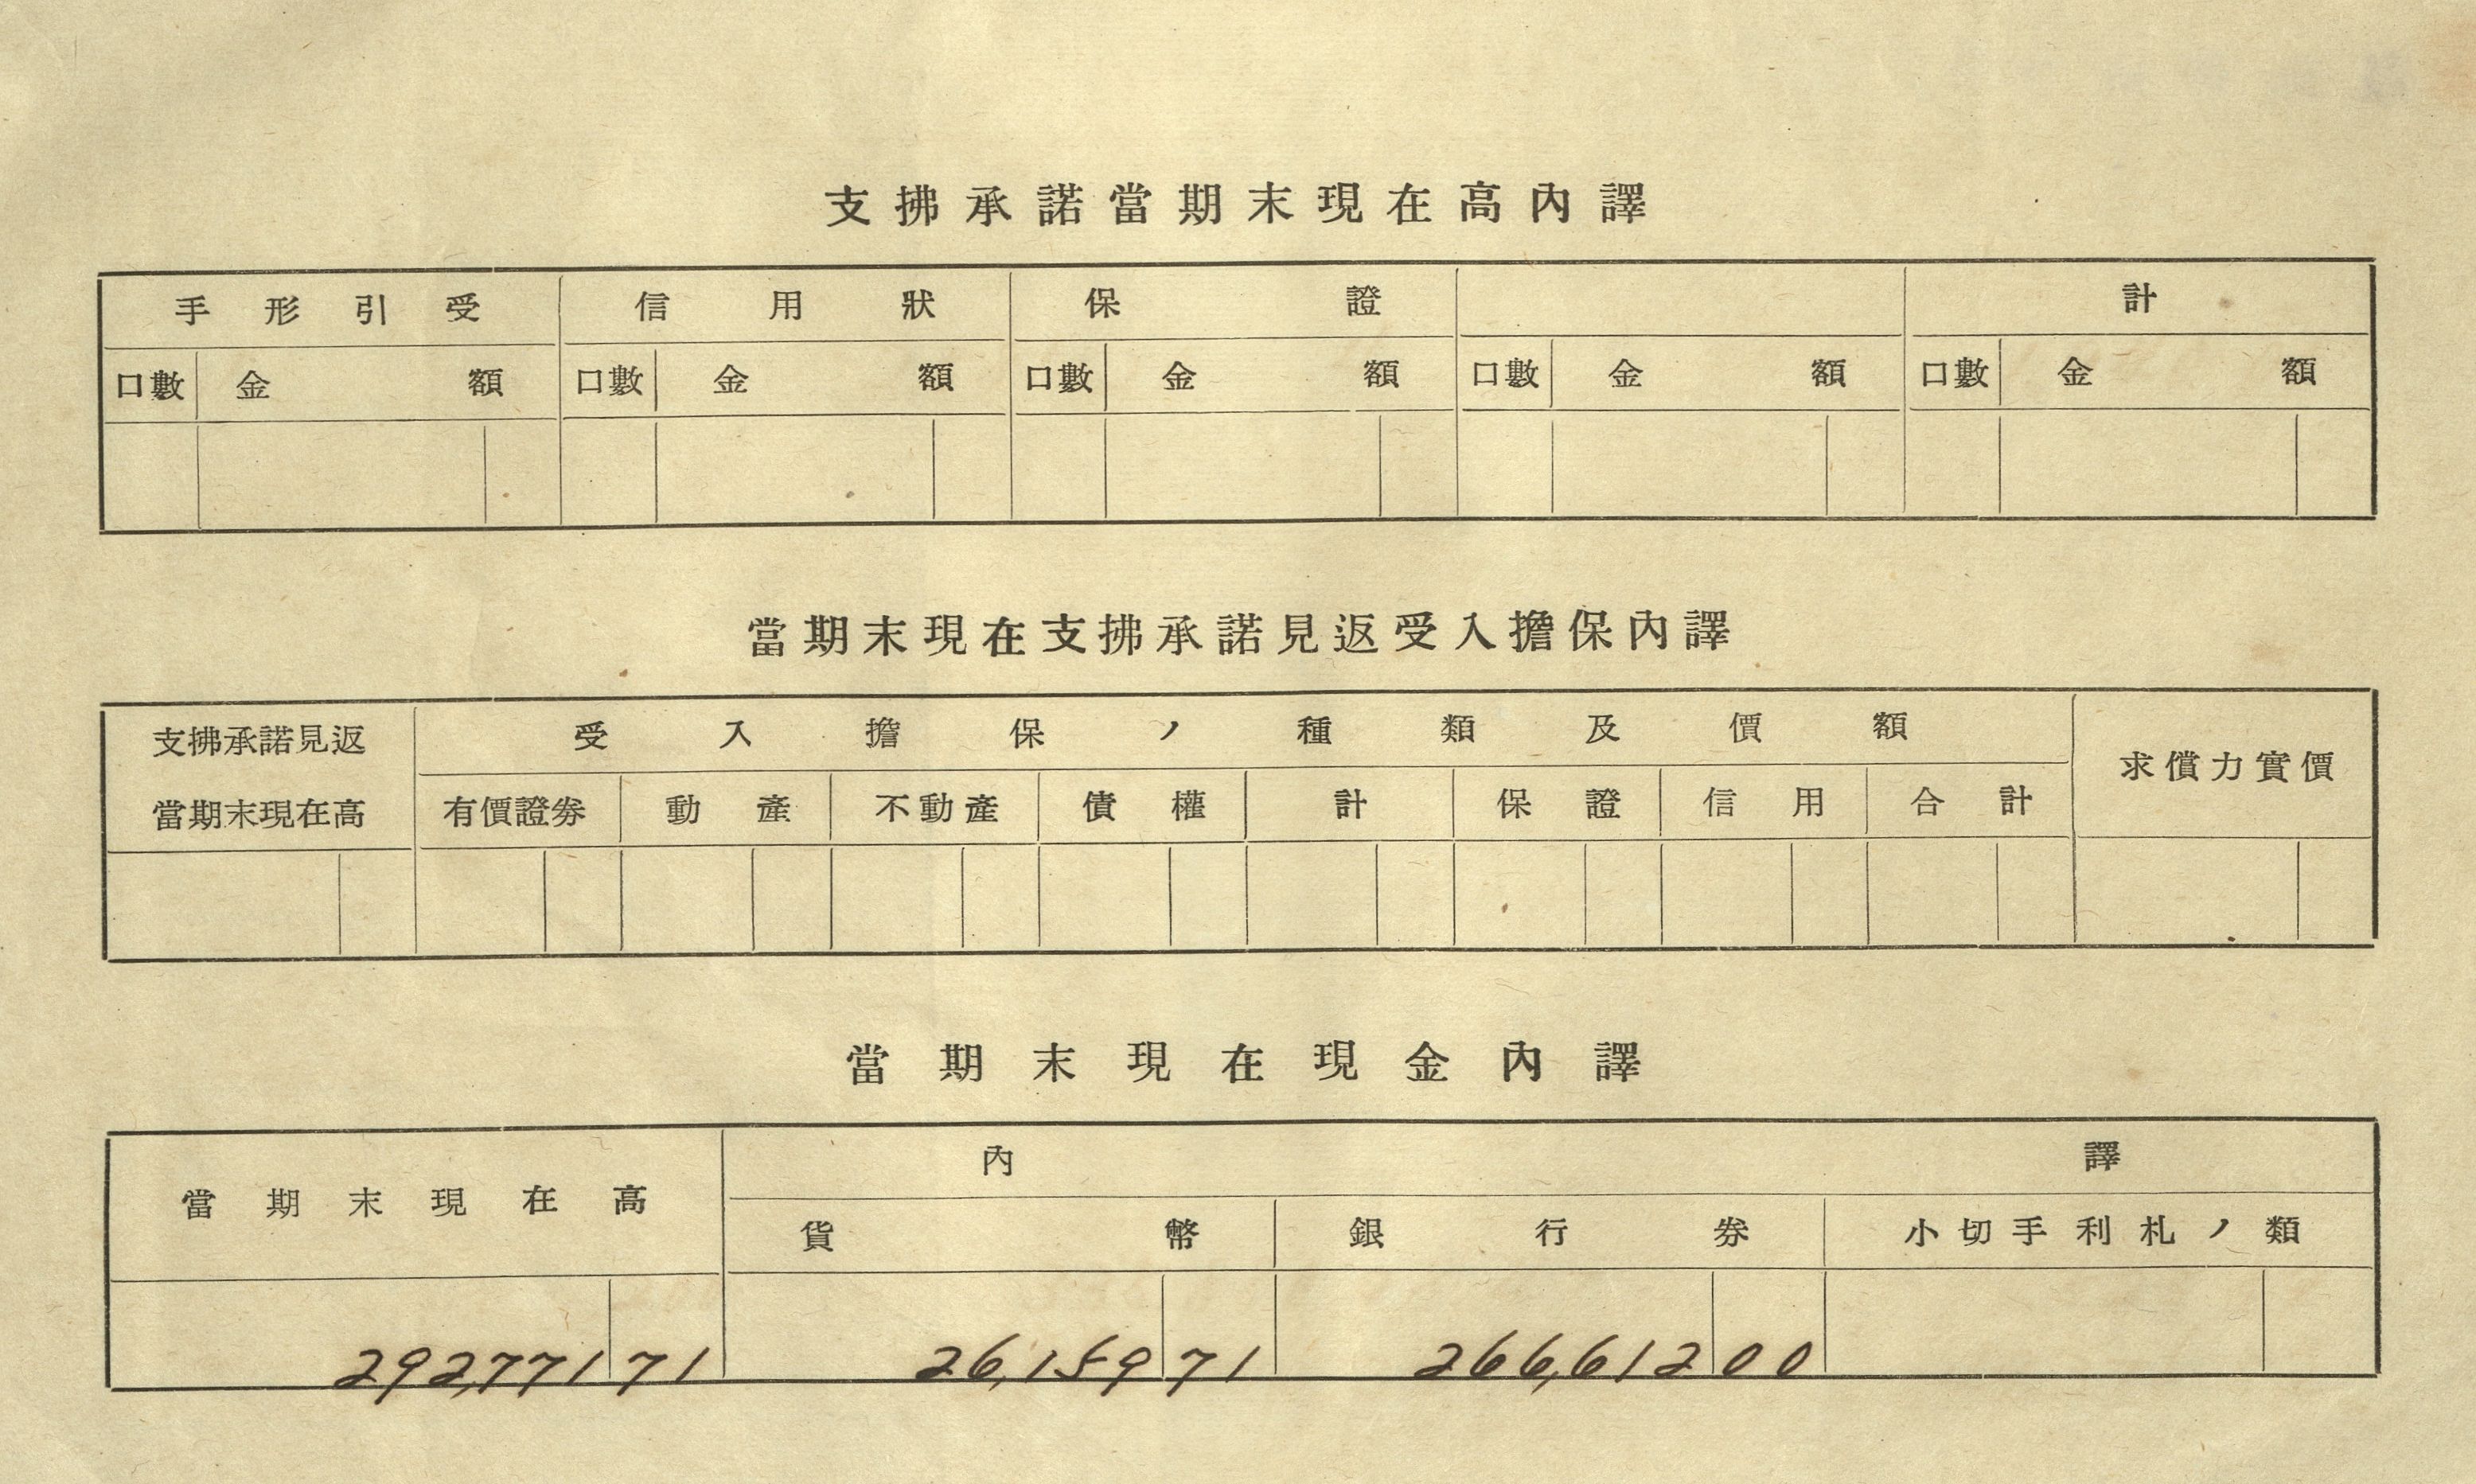 支拂承諾當期末現在高內譯
手形引受 信用狀 保證 計
口數 金額 口數 金額 口數 金額 口數 金額 口數 金額
當期末現在支拂承諾見返受入擔保內譯
支拂承諾見返當期末現在高 受入擔保ノ種類及價額 求償力實價
有價證券 動產 不動產 債權 計 保證 信用 合計
當期末現在現金內譯
當期末現在高 內譯
貨幣 銀行券 小切手利札ノ類
292,771 71 26,159 71 266,612 00